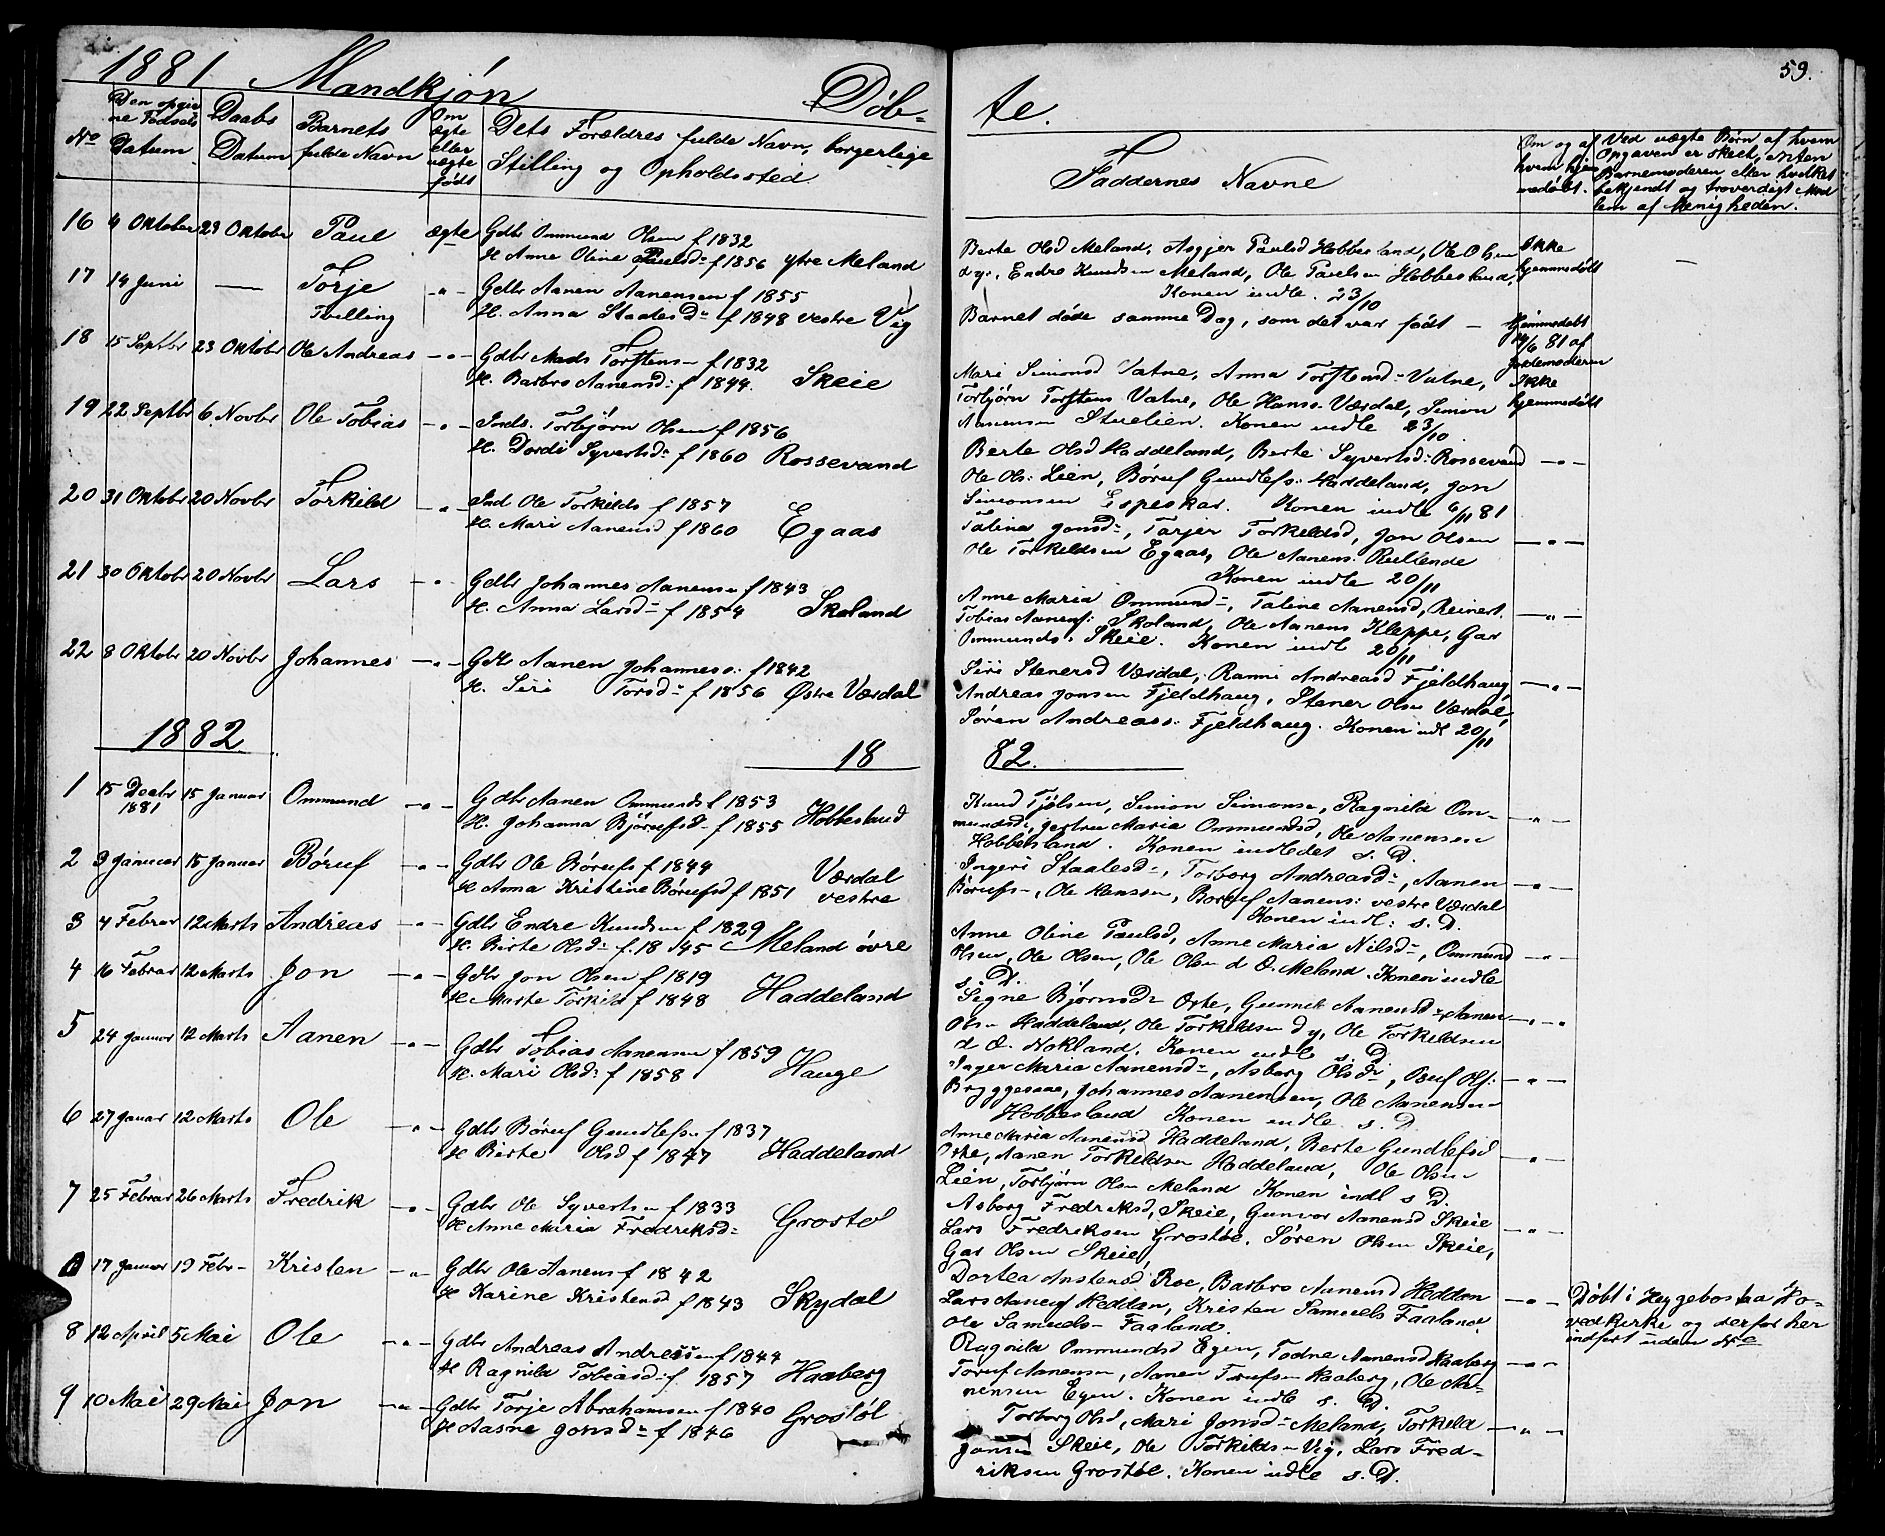 1881 Mandkjón Döb- te. 59.
No
Den opgivne Fødsels Datum
Daabs Datum
Barnets fulde Navn
Om ægte eller uægte født
Dets Forældres fulde Navn, borgerlige Stilling og Opholdssted.
Faddernes Navne
Om og af hvem hjemmedøbt.
Ved uægte Børn af hvem Opgaven er skeet, enten Barnemoderen eller hvilket bekjendt og troværdigt Medlem af Menigheden.
16 4 Oktober 23 Oktobr Paul ægte Gdbr Ommund Olsen f 1832
H. Anne Oline Paulsd: f 1856 ytre Meland
Berte Olsd Meland, Asgjer Paulsd Hobbesland, Ole Olsen
d y., Endre Knudsen Meland, Ole Paulsen Hobbesland,
Konen indle. 23/10
Ikke hjemmedøbt
17 14 Juni — Torje Tvilling -"- Gdbr Aanen Aanensen f 1855
H. Anna Staalesd: f 1848 vestre Vig
Barnet døde samme Dag, som det var født —
Hjemmedøbt 14/6 81 af Jordemoderen
18 15 Septbr 23 Oktobr Ole Andreas -"- Gdbr Mads Torstens- f 1832
H. Barbro Aanensd: f 1844. Skeie
Mari Simonsd Vatne, Anna Torstensd- Vatne,
Torbjörn Torstens Vatne, Ole Hans- Værdal, Simon
Aanensen Stuelien. Konen indle 23/10.
Ikke hjemmedøbt
19 22 Septbr 6 Novbr Ole Tobias -"- Inds. Torbjörn Olsen f 1856
H. Dordi Syvertsd: f 1860 Rossevand
Berte Olsd Haddeland, Berte Syvertsd: Rossevand -"-
Ole Ols: Lien, Børuf Gundlefs: Haddeland, Jon
Simonsen Espeskar. Konen indle 6/11 81
20 31 Oktobr 20 Novbr Torkild -"- Ind Ole Torkilds f 1857
H. Mari Aanensd f 1860 Egaas
Taline Jonsd-, Tarjer Torkeldsd, Jon Olsen -"-
Ole Torkeldsen Egaas, Ole Aanens: Rullende
Konen indle 20/11
21 30 Oktobr 20 Novbr Lars -"- Gdbr Johannes Aanens- f 1843
H. Anna Larsd- f 1854 Skoland
Anne Maria Ommund-, Taline Aanensd, Reinert -"-
Tobias Aanens: Skoland, Ole Aanens Kleppe, Gar
Ommunds: Skeie. Konen indl 20/11
22 8 Oktobr 20 Novbr Johannes -"- Gdbr Aanen Johanness: f 1842
H. Siri Torsd- f 1856 Østre Værdal
Siri Stenersd Værdal, Ranni Andreasd Fjeldhaug, -"-
Andreas Jonsen Fjeldhaug, Stener Olsen Værdal,
Søren Andreass: Fjeldhaug. Konen indl 20/11
1882 18 82.
1 15 Decbr 1881 15 Januar Ommund -"- Gdbr Aanen Ommunds f 1853
H. Johanna Bjørufsd- f 1855 Hobbesland
Knud Tjølsen, Simon Simons-, Ragnilde Om-
mundsd:, Jertru Maria Ommundsd, Ole Aanensen
Hobbesland. Konen indledet s. D. -"-
2 3 Januar 15 Januar Børuf -"- Gdbr Ole Børufs f 1844
H Anna Kristine Børufsd f 1851 Værdal vestre
Ingeri Staalesd-, Torborg Andreasd-, Aanen -"-
Børufs-, Ole Hansen, Børuf Aanens: vestre Værdal
Konen indl: s. D.
3 4 Februar 12 Marts Andreas -"- Gdbr Endre Knudsen f 1829
H. Birte Olsd- f. 1845 Meland övre
Anne Oline Paulsd, Anne Maria Nilsd-, Ommund -"-
Olsen, Ole Olsen, Ole Olsen d Æ. Meland. Konen indle
s. D.
4 16 Februar 12 Marts Jon -"- Gdbr Jon Olsen f 1819
H Marte Torkild f 1848 Haddeland
Signe Bjørnsd- Oske, Gunnil Aanensd- Aanen -"-
Olsen Haddeland, Ole Torkeldsen d y, Ole Torkeldsen
d Æ. Hokland. Konen indle s. D.
5 24 Januar 12 Marts Aanen -"- Gdbr Tobias Aanensen f 1859
H. Mari Olsd: f 1858 Hauge
Inger Maria Aanensd-, Asborg Olsd-, Buf Ols: -"-
Bryggesaae, Johannes Aanensen, Ole Aanensen
Hobbesland Konen indle s. D.
6 27 Januar 12 Marts Ole -"- Gdbr Børuf Gundlefs- f 1837
H Birte Olsd f 1847 Haddeland
Anne Maria Aanensd Haddeland, Berte Gundlefsd
Oske, Aanen Torkeldsen Haddeland, Ole Olsen -"-
Lien, Torbjörn Olsen Meland Konen indl s D.
7 25 Februar 26 Marts Fredrik -"- Gdbr Ole Syverts-n f 1833
H Anne Maria Fredriksd- Grostøl
Asborg Fredriksd, Skeie, Gunvor Aanensd Skeie
Lars Fredriksen Grostøl. Søren Olsen Skeie, -"-
Gar Olsen Skeie,
0 17 Januar 19 Febr- Kristen -"- Gdbr Ole Aanens f 1842
H Karine Kristensd f 1843 Skydal
Dortea Anstensd Roe, Barbro Aanensd Heddan
Lars Aanens Heddan, Kristen Samuels Faaland -"-
Ole Samuels- Faaland.
Døbt i Heggebostaa Ho-
vedkirke og derfor her
indført uden No
8 12 April 5 Mai Ole -"- Gdbr Andreas Andreassen f 1844
H Ragnila Tobiasd: f. 1857 Haaberg
Ragnila Ommundsd Egen, Todne Aanensd Haaberg -"-
Toruf Aanensen, Aanen Torufsen Haaberg, Ole Aa-
nensen Egen. Konen indle s. D.
9 10 Mai 29 Mai Jon -"- Gdbr Torje Abrahamsen f 1840
H Aasne Jonsd- f 1846 Grostøl
Torborg Olsd, Mari Jonsd- Meland, Torkild -"-
Jonsen Skeie, Ole Torkilds- Vig, Lars Fred-
riksen Grostøl. Konen indle s. D.